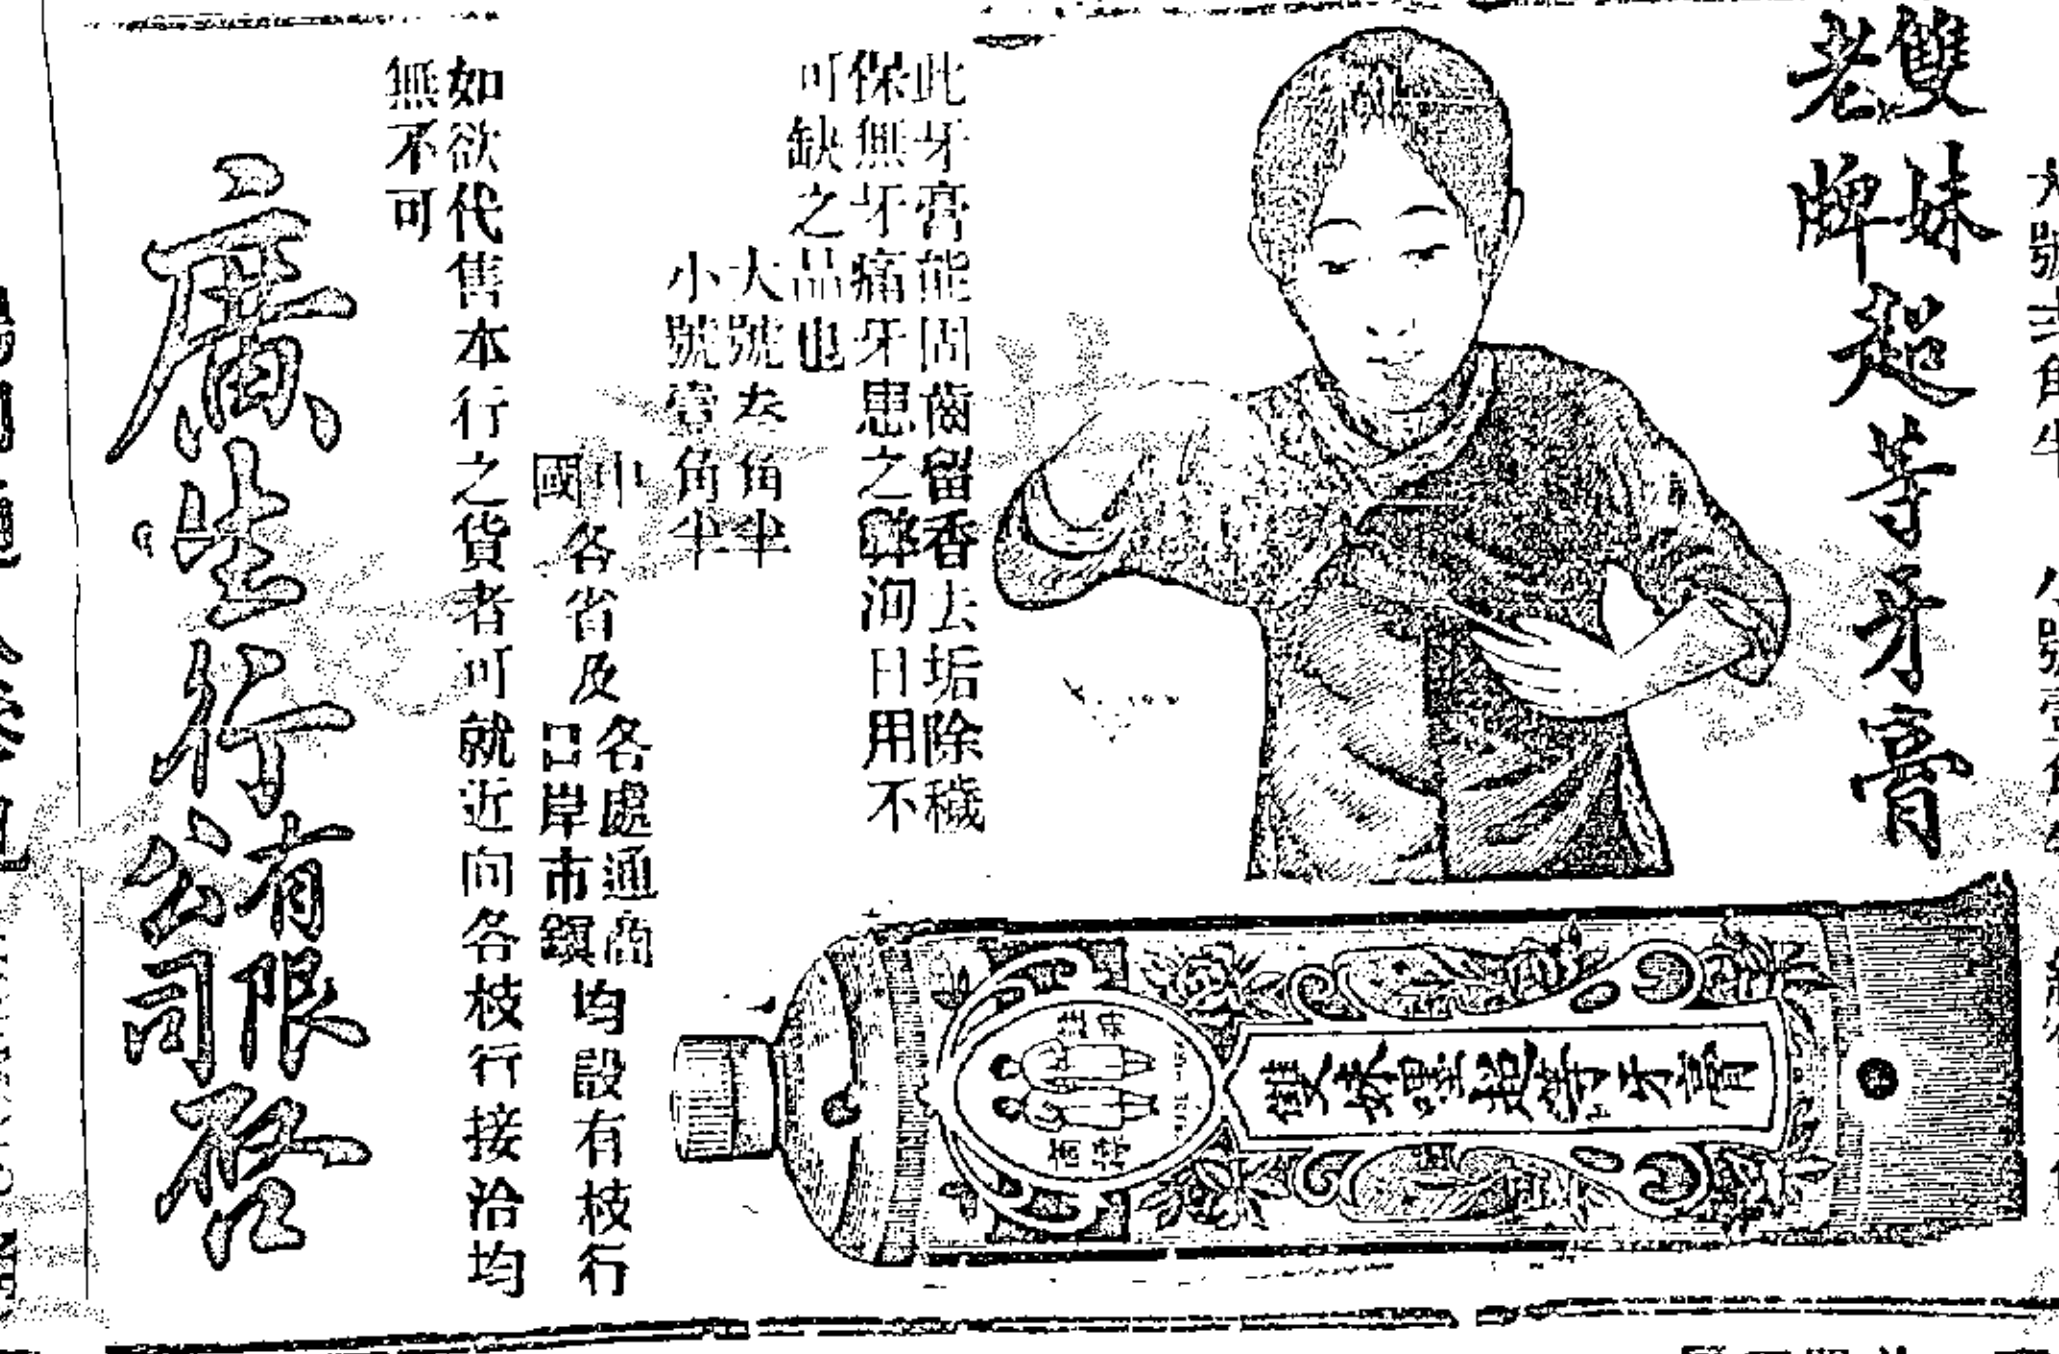 雙妹
老牌
超等牙膏
此牙膏能固齒留香去垢除穢
保無牙痛牙患之弊洵日用不
可缺之品也
大號叁角半
小號壹角半
中國各省及各處通商口岸市鎮均設有枝行
如欲代售本行之貨者可就近向各枝行接洽均
無不可
廣生行有限公司啓
雙妹嚜超等牙膏